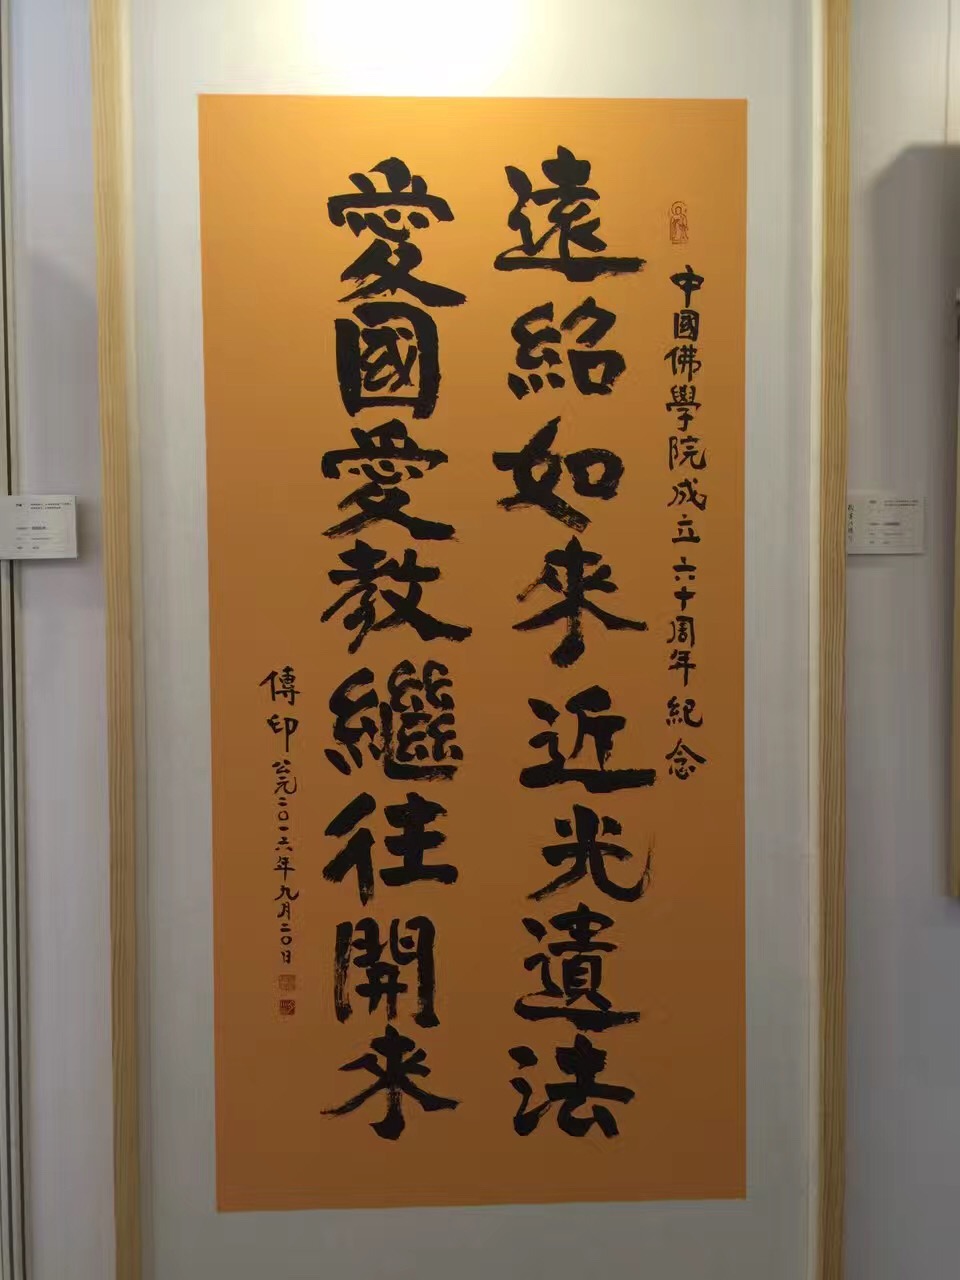 中國佛學院成立六十周年紀念
遠紹如來近光遺法
愛國愛教繼往開來
傳印 公元二〇一六年九月二〇日